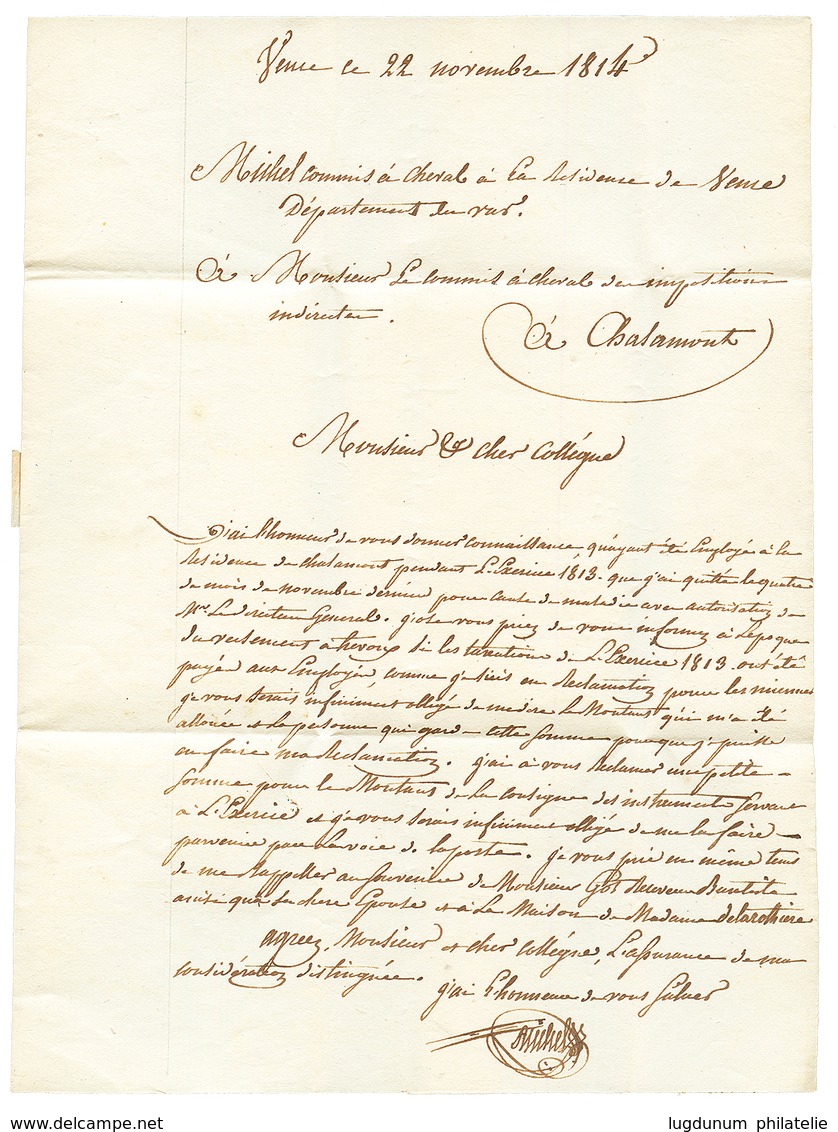 Vence ce 22 novembre 1814
Michel commis à cheval à la Residence de Vence
Département du var.
à Monsieur Le commis à cheval des impositions
indirectes.
à Chalamont
Monsieur & cher Collégue
j'ai l'honneur de vous donner connaissance qu'ayant été Employé à la
Residence de chalamont pendant L'Exercice 1813. que j'ai quitté le quatre
de mois de novembre dernier pour cause de maladie avec autorisation de
Mr. Le directeur General. j'ose vous priez de vous informez à L'epoque
du versement a trevoux si les taxations de L'Exercice 1813. ont été
payés aux Employés, comme je suis en Reclamation pour les miennes
je vous serais infiniment obligé de me dire Le Montant qui m'a été
allouée et la personne qui garde cette somme pour que je puisse
en faire ma Reclamation. j'ai à vous Reclamer une petite
somme pour le Montant de La Consigne des instruments servant
à L'Exercice et je vous serais infiniment obligé de me la faire
parvenir par La voie de la poste. je vous prie en même tems
de me Rappeller au souvenir de Monsieur Receveur Buraliste
ainsi que sa chere Epouse et à La Maison de Madame delarothiere
agreez, Monsieur et cher Collégue, L'assurance de ma
considération distinguée.
j'ai l'honneur de vous saluer
Michel
www.delcampe.net
lugdunum philatelie